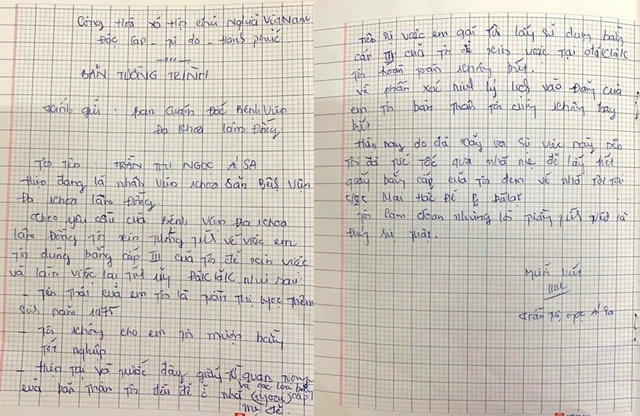 Cộng Hoà xã hội chủ Nghĩa Việt Nam
Độc lập - Tự do - Hạnh phúc
BẢN TƯỜNG TRÌNH
Kính gửi: Ban Giám Đốc Bệnh Viện
Đa khoa Lâm Đồng
Tôi tên TRẦN THỊ NGỌC ÁI SA
Hiện đang là nhân viên khoa Sản Bệnh viện
Đa khoa Lâm Đồng
Theo yêu cầu của Bệnh viện Đa khoa
Lâm Đồng tôi xin tường trình về việc em
tôi dùng bằng cấp III của tôi để xin việc
và làm việc tại tỉnh ủy ĐăkLăk như sau:
- Tên thật của em tôi là Trần Thị Ngọc Thêm
Sinh năm 1975
- Tôi không cho em tôi mượn bằng
tốt nghiệp
- Hiện tại và trước đây giấy tờ quan trọng
và các loại
của bản thân tôi đều để ở nhà
mẹ đẻ
Tiếp sự việc em gái tôi lấy sử dụng bằng
cấp III của tôi để xin việc tại ĐăkLăk
tôi hoàn toàn không biết.
về phần xác minh lý lịch vào Đảng của
em tôi bản thân tôi cũng không hay
biết
Hiện nay do đã xảy ra sự việc này nên
tôi đã tức tốc qua nhà mẹ để lấy hết
giấy bằng cấp của tôi đem về nhà tôi tại
Mai Hắc Đế Đà Lạt
Tôi cam đoan những lời tường trình trên là
Đúng sự thật.
Người viết
Trần Thị Ngọc Ái Sa